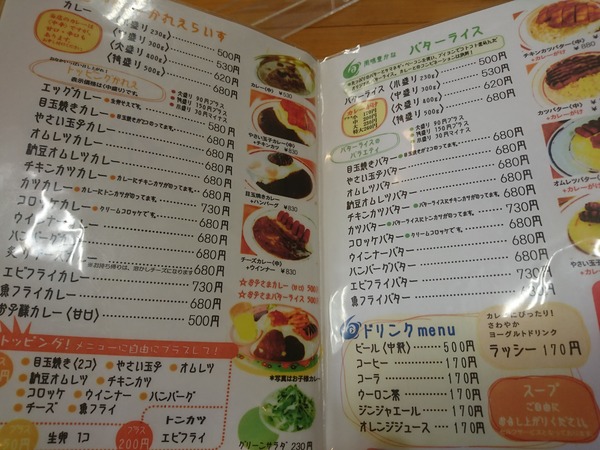 カレー
かれえらいす
小盛り 230g 500円
中盛り 300g 530円
大盛り 400g 580円
特盛り 500g 680円
トッピングかれえ
表示価格は〈中盛り〉です。
大盛り 90円プラス
特盛り 150円プラス
小盛り 30円マイナス
エッグカレー 580円
目玉焼きカレー 680円
やさい玉子カレー 680円
オムレツカレー 680円
納豆オムレツカレー 680円
チキンカツカレー 730円
カツカレー 730円
コロッケカレー 680円
ウインナーカレー 680円
ハンバーグカレー 680円
エビフライカレー 730円
魚フライカレー 680円
お子様カレー〈甘口〉 500円
トッピング! メニューに自由にプラスして!
●目玉焼き〈2コ〉 ●やさい玉子 ●オムレツ
●納豆オムレツ ●チキンカツ
●コロッケ ●ウインナー ●ハンバーグ
●チーズ ●魚フライ
生卵 1コ
プラス 200円
トンカツ
エビフライ
やさい玉子カレー(中)
+チキンカツ ¥830
目玉焼きカレー(中)
+ハンバーグ ¥830
チーズカレー(中)
+ウインナー ¥830
☆お子さまカレー(甘口) 500円
☆お子さまバターライス 500円
※写真はお子様カレー
グリーンサラダ 230円
風味豊かな
バターライス
バターライス〈小盛り 230g〉 500円
〈中盛り 300g〉 530円
〈大盛り 400g〉 620円
〈特盛り 500g〉 680円
カレーがけ
大盛り 90円プラス
特盛り 150円プラス
小盛り 30円マイナス
バターライスの
バラエティ
目玉焼きバター 680円
やさい玉子バター 680円
オムレツバター 680円
納豆オムレツバター 680円
チキンカツバター 730円
カツバター 730円
コロッケバター 680円
ウインナーバター 680円
ハンバーグバター 680円
エビフライバター 730円
魚フライバター 680円
チキンカツバター(中)
+カレーがけ
+カレーがけ
オムレツバター(中)
+カレーがけ
やさい玉子
+カレー
ドリンクmenu
ビール〈中瓶〉 500円
コーヒー 170円
コーラ 170円
ウーロン茶 170円
ジンジャエール 170円
オレンジジュース 170円
カレーにぴったり!
さわやか
ヨーグルトドリンク
ラッシー 170円
スープ
ご自由に
お召し上がりください。